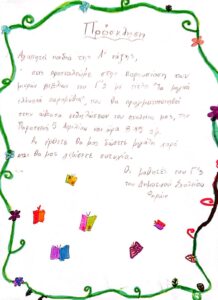 Πρόσκληση
Αγαπητά παιδιά της Α' τάξης,
σας προσκαλούμε στην παρουσίαση των
μικρών βιβλίων του Γ'3 με τίτλο "Τα μαγικά
παραμύθια", που θα πραγματοποιηθεί
στην αίθουσα εκδηλώσεων του σχολείου μας, την
Παρασκευή 5 Απριλίου και ώρα 8:45 π.μ.
Αν έρθετε θα μας δώσετε μεγάλη χαρά
και θα μας κάνετε ευτυχία.
Οι μαθητές του Γ'3
του Δημοτικού Σχολείου